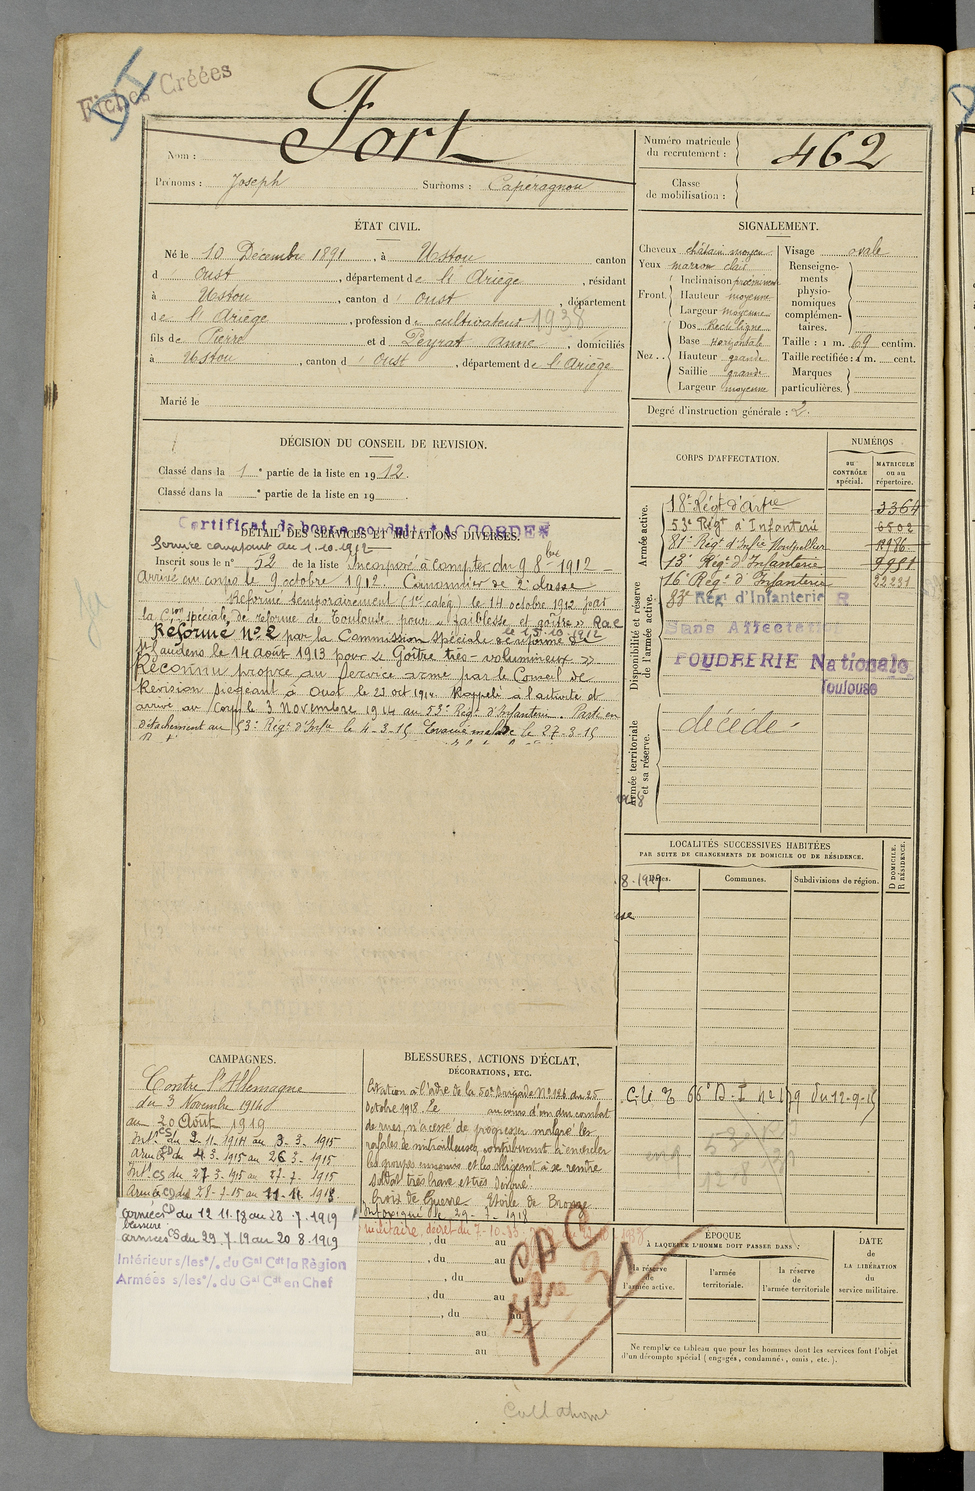 Fiches Créées
Fort
Nom :
Prénoms : Joseph Surnoms : Capéragnou
Numéro matricule
du recrutement : 462
Classe
de mobilisation :
ÉTAT CIVIL.
Né le 10 Décembre 1891, à Ustou canton
d' Oust, département de l'Ariège, résidant
à Ustou, canton d' Oust, département
de l'Ariège, profession de cultivateur 1938
fils de Pierre et d Peyrat Anne, domiciliés
à Ustou, canton d' Oust, département de l'Ariège
Marié le
SIGNALEMENT.
Cheveux châtain moyen
Yeux marron clair
Front. Inclinaison proéminent
Hauteur moyenne
Largeur moyenne
Nez.. Dos Rectiligne
Base Horizontale
Hauteur grande
Saillie grande
Largeur moyenne
Visage ovale
Renseigne-
ments
physio-
nomiques
complémen-
taires.
Taille : 1 m. 69 centim.
Taille rectifiée : 1 m. cent.
Marques
particulières.
Degré d'instruction générale : 2.
DÉCISION DU CONSEIL DE REVISION.
Classé dans la 1e partie de la liste en 1912.
Classé dans la e partie de la liste en 19
Certificat de bonne conduite *ACCORDÉ*
DÉTAIL DES SERVICES ET MUTATIONS DIVERSES.
Service comptant du 1.10.1912
Inscrit sous le n° 52 de la liste Incorporé à compter du 9 8bre 1912
Arrivé au corps le 9 octobre 1912. Canonnier de 2e classe
Réformé temporairement (1re catég) le 14 octobre 1912 par
la Con spéciale de réforme de Toulouse pour « faiblesse et goître » Raé
le 15.10.1912
Réformé No 2 par la Commission spéciale de réforme de
St Gaudens le 14 août 1913 pour « Goître très-volumineux »
Reconnu propre au Service armé par le Conseil de
Révision siégeant à Oust le 22 oct 1914. Rappelé à l'activité et
arrivé au Corps le 3 Novembre 1914 au 53e Régt d'Infanterie. Parti en
détachement au 53e Régt d'Infie le 4-3-15 Evacué malade le 27-3-15
CORPS D'AFFECTATION.
NUMÉROS
AU
CONTRÔLE
spécial.
MATRICULE
ou au
répertoire.
Armée active.
18e Régt d'Artie 3364
53e Régt d'Infanterie 6502
81e Régt d'Infie Montpellier
13e Régt d'Infanterie
16e Régt d'Infanterie 22231
Disponibilité et réserve
de l'armée active.
83e Rég d'Infanterie R
Sans Affectation
POUDRERIE Nationale
Toulouse
Armée territoriale
et sa réserve.
décédé.
LOCALITÉS SUCCESSIVES HABITÉES
PAR SUITE DE CHANGEMENTS DE DOMICILE OU DE RÉSIDENCE.
Communes.
Subdivisions de région.
D DOMICILE.
R RÉSIDENCE.
CAMPAGNES.
Contre l'Allemagne
du 3 Novembre 1914
au 20 Août 1919
Intr CS du 2-11-1914 au 3-3-1915
Armée CD du 4-3-1915 au 26-3-1915
Intr CS du 27-3-1915 au 27-7-1915
Armée CD du 28-7-15 au 11-11-1918
armées CD du 12 11.18 au 28.7.1919
blessure
armées CS du 29.7.19 au 20 8.1919
Intérieur s/les o/. du Gal Cdt la Région
Armées s/les o/. du Gal Cdt en Chef
BLESSURES, ACTIONS D'ÉCLAT,
DÉCORATIONS, ETC.
Citation à l'ordre de la 50e Brigade No 126 du 25
Octobre 1918. Le au cours d'un dur combat
de rues, n'a cessé de progresser malgré les
rafales de mitrailleuses, contribuant à encercler
les groupes ennemis et les obligeant à se rendre
Soldat très brave et très dévoué.
Croix de Guerre Etoile de Bronze
Intoxiqué le 29-7-1918
militaire, décret du 7-10-33
, du au
, du au
, du au
, du au
, du au
au
au
CAC
7bre 31
Cité E 66e D.I n° 179 du 12-9-15
ÉPOQUE
À LAQUELLE L'HOMME DOIT PASSER DANS :
la réserve
de
l'armée active.
l'armée
territoriale.
la réserve
de
l'armée territoriale
DATE
de
LA LIBÉRATION
du
service militaire.
Ne remplir ce tableau que pour les hommes dont les services font l'objet
d'un décompte spécial (engagés, condamnés, omis, etc.).